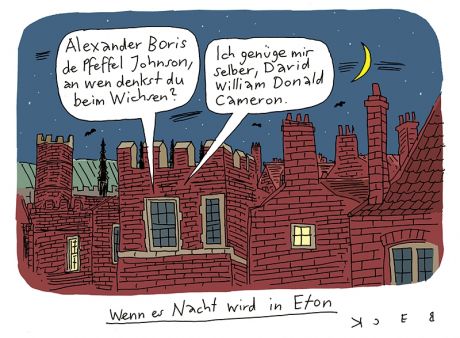 Alexander Boris
de Pfeffel Johnson,
an wen denkst du
beim Wichsen?
Ich genüge mir
selber, David
William Donald
Cameron.
Wenn es Nacht wird in Eton
BECK